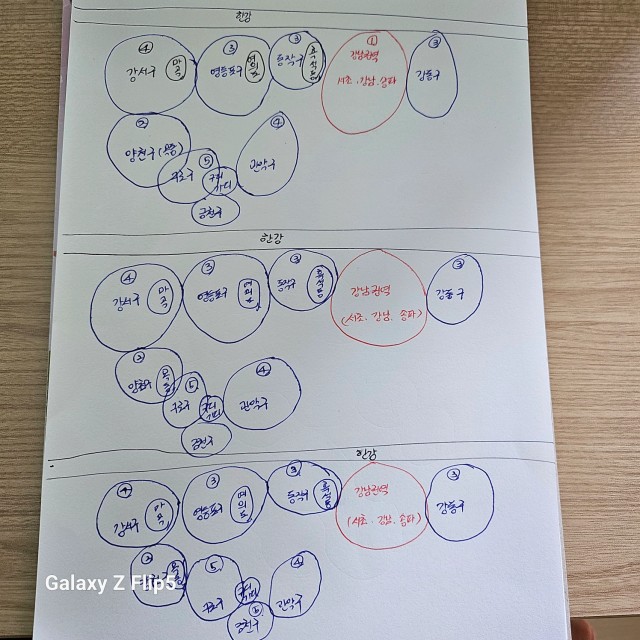 한강
④ ③ ③ ① ③
강서구 마곡 영등포구 여의도 동작구 흑석동 강남권역 강동구
서초.강남.송파
② ④
양천구(목동) ⑤ 관악구
구로구 구디 가디
금천구
한강
④ ③ ③ ③
강서구 마곡 영등포구 여의도 동작구 흑석동 강남권역 강동구
(서초.강남.송파)
② ⑤ ④
양천구 목동 구로구 구디 가디 관악구
금천구
한강
④ ③ ③ ③
강서구 마곡 영등포구 여의도 동작구 흑석동 강남권역 강동구
(서초.강남.송파)
② 목동 ⑤ ④
구로구 구디 가디 관악구
금천구
Galaxy Z Flip5